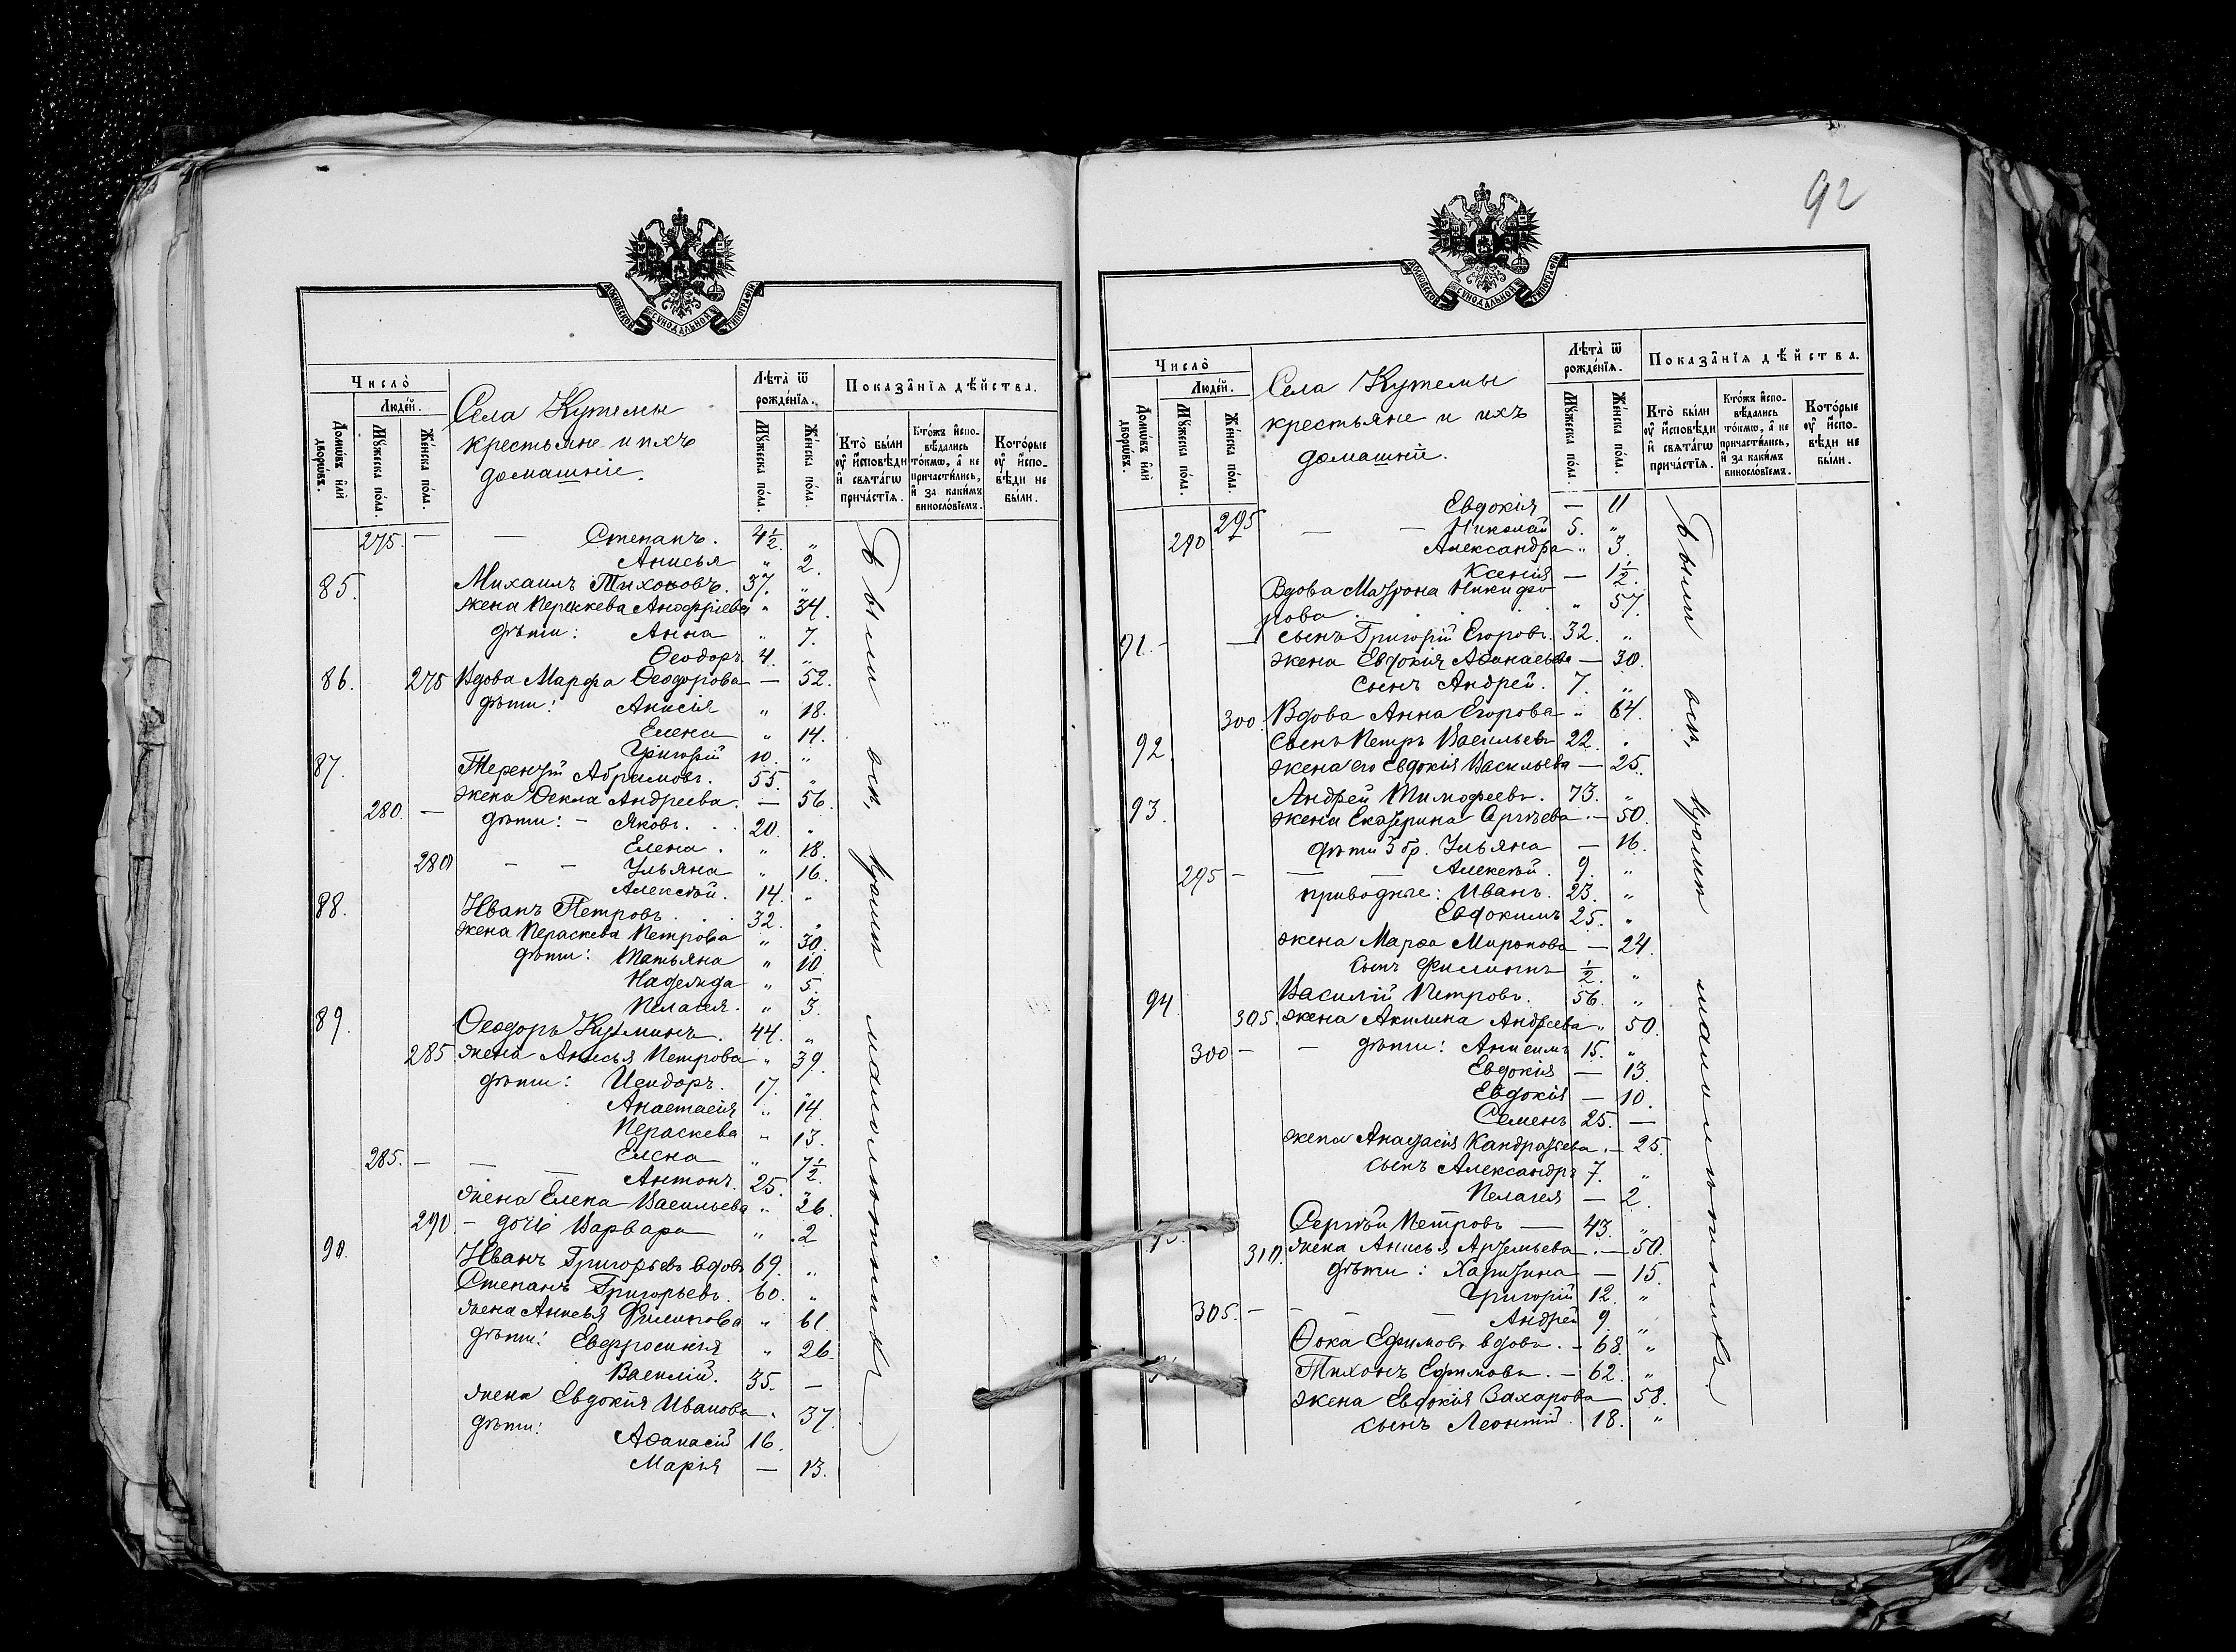 МОСКОВСКОЙ СУНОДАЛЬНОЙ ТИПОГРАФІИ
Число̀
Люде́й.
Домѡ́въ и҆лѝ дворѡ́въ.
Мꙋ́жеска по́ла.
Же́нска по́ла.
Села Кутемы
крестьяне и ихъ
домашніе.
Лѣта̀ ѿ рожде́нїѧ.
Мꙋ́жеска по́ла.
Же́нска по́ла.
Показа̑нїѧ дѣ́йства.
Кто̀ бы́ли ᲂу҆ и҆сповѣди и҆ свѧта́гѡ прича́стїѧ.
Кто́жъ и҆спо­вѣдались то́кмѡ, а҆ не причасти́лись, и҆ за каки́мъ винослові́емъ.
Кото́рые ᲂу҆ и҆спо­вѣди не бы́ли.
275. — — Степанъ. 4½. "
Анисья " 2.
85. Михаилъ Тихоновъ. 37. "
жена Пераскева Анофріева " 34.
дѣти: Анна " 7.
Ѳеодоръ. 4. "
86. 275 Вдова Марфа Ѳеодорова — 52.
дѣти: Анисія " 18.
Елена " 14.
Григорій 10. "
87. Терентій Абрамовъ. 55. "
жена Ѳекла Андреева. — 56.
280. — дѣти: — Яковъ. . . 20. "
Елена. " 18.
280 — — Ульяна " 16.
Алексѣй. 14. "
88. Иванъ Петровъ . . . 32. "
жена Пераскева Петрова " 30.
дѣти: Татьяна " 10.
Надежда " 5.
Пелагея. " 3.
89. Ѳеодоръ Кузминъ. 44. "
285 жена Анисья Петрова " 39.
дѣти: Исидоръ. 17. "
Анастасія " 14.
Пераскева " 13.
285. — — Елена " 7½.
— Антонъ. 25. "
жена Елена Васильева " 26.
290 — дочь Варвара " 2
90. Иванъ Григорьевъ вдовъ 69. "
Степанъ Григорьевъ. 60. "
жена Анисья Филипова " 61.
дѣти: Евфросинія " 26.
Василій. 35. —
жена Евдокія Иванова " 37.
дѣти: Аѳанасій 16.
Марія — 13.
Были вси, кромѣ малолѣтнихъ
92
МОСКОВСКОЙ СУНОДАЛЬНОЙ ТИПОГРАФІИ
Число̀
Люде́й.
Домѡ́въ и҆лѝ дворѡ́въ.
Мꙋ́жеска по́ла.
Же́нска по́ла.
Села Кутемы
крестьяне и ихъ
домашніи.
Лѣта̀ ѿ рожде́нїѧ.
Мꙋ́жеска по́ла.
Же́нска по́ла.
Показа̑нїѧ дѣ́йства.
Кто̀ бы́ли ᲂу҆ и҆сповѣди и҆ свѧта́гѡ прича́стїѧ.
Кто́жъ и҆спо­вѣдались то́кмѡ, а҆ не причасти́лись, и҆ за каки́мъ винослові́емъ.
Кото́рые ᲂу҆ и҆спо­вѣди не бы́ли.
Евдокія — 11
290. 295 — — Николай 5. "
Александра " 3.
Ксенія — 1½.
Вдова Матрона Никифо
рова . . . . " 57.
91. — — сынъ Григорій Егоровъ. 32. "
жена Евдокія Аѳанасьева — 30.
Сынъ Андрей. 7. "
300. Вдова Анна Егорова " 64.
92. Сынъ Петръ Васильевъ 22. "
жена его Евдокія Васильева — 25.
93. Андрей Тимофеевъ. 73. "
жена Екатерина Сергѣева. — 50.
дѣти 3 бр. Ульяна — 16.
295 — — — Алексѣй. 9. "
приводные: Иванъ. 23. "
Евдокимъ 25. "
жена Марѳа Миронова — 24.
Сынъ Филиппъ ½ "
94. Василій Петровъ. 56. "
305. жена Акилина Андреева " 50.
300 — — дѣти: Анисимъ 15. "
Евдокія — 13.
Евдокія — 10.
Семенъ 25. —
жена Анастасія Кандратьева. — 25.
Сынъ Александръ 7. "
Пелагея — 2.
95. Сергѣй Петровъ — 43. "
310. жена Анисья Артемьева — 50.
дѣти: Харитина — 15.
Григорій 12. "
305. — — — — Андрей 9. "
Ѳока Ефимовъ вдовъ. — 68. "
Тихонъ Ефимовъ. — 62. "
жена Евдокія Захарова 58.
сынъ Леонтій. 18. "
Были вси, кромѣ малолѣтнихъ.